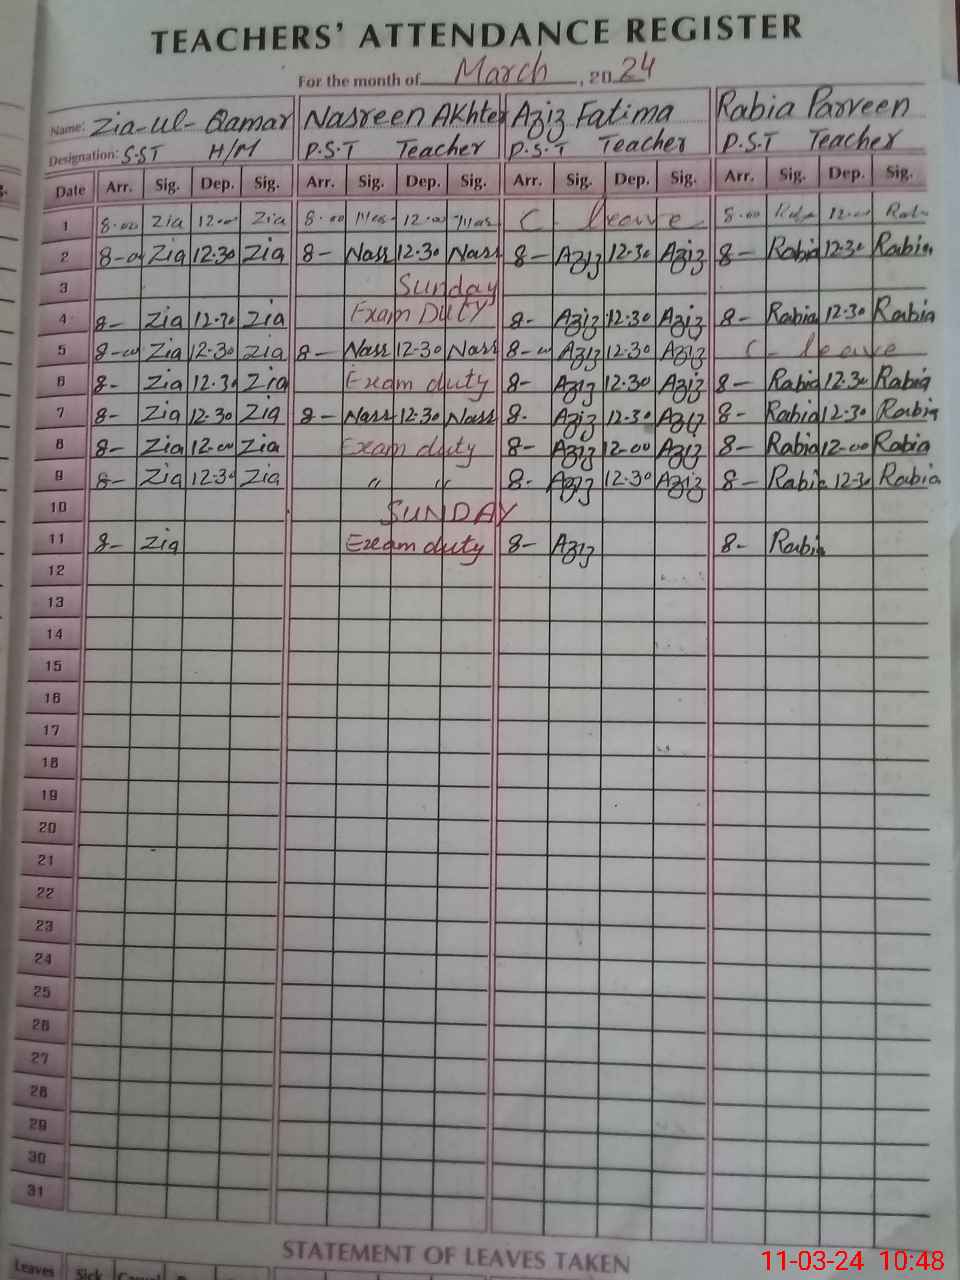 TEACHERS' ATTENDANCE REGISTER
For the month of March, 2024
Name: Zia-ul-Qamar Nasreen Akhter Aziz Fatima Rabia Parveen
Designation: S.ST H/M P.S.T Teacher P.S.T Teacher P.S.T Teacher
Date Arr. Sig. Dep. Sig. Arr. Sig. Dep. Sig. Arr. Sig. Dep. Sig. Arr. Sig. Dep. Sig.
1 8-00 Zia 12-00 Zia 8-00 12-00 C- leave 8-00 12-00
2 8-00 Zia 12-30 Zia 8- Nass 12-30 Nass 8- Aziz 12-30 Aziz 8- Rabia 12-30 Rabia
3 Sunday
4 8- Zia 12-30 Zia Exam Duty 8- Aziz 12-30 Aziz 8- Rabia 12-30 Rabia
5 8-00 Zia 12-30 Zia 8- Nass 12-30 Nass 8-00 Aziz 12-30 Aziz C- leave
6 8- Zia 12-30 Zia Exam duty 8- Aziz 12-30 Aziz 8- Rabia 12-30 Rabia
7 8- Zia 12-30 Zia 8- Nass 12-30 Nass 8- Aziz 12-30 Aziz 8- Rabia 12-30 Rabia
8 8- Zia 12-00 Zia Exam duty 8- Aziz 12-00 Aziz 8- Rabia 12-00 Rabia
9 8- Zia 12-30 Zia " " 8- Aziz 12-30 Aziz 8- Rabia 12-30 Rabia
10 SUNDAY
11 8- Zia Exam duty 8- Aziz 8- Rabia
12
13
14
15
16
17
18
19
20
21
22
23
24
25
26
27
28
29
30
31
STATEMENT OF LEAVES TAKEN
Leaves Sick Casual
11-03-24 10:48